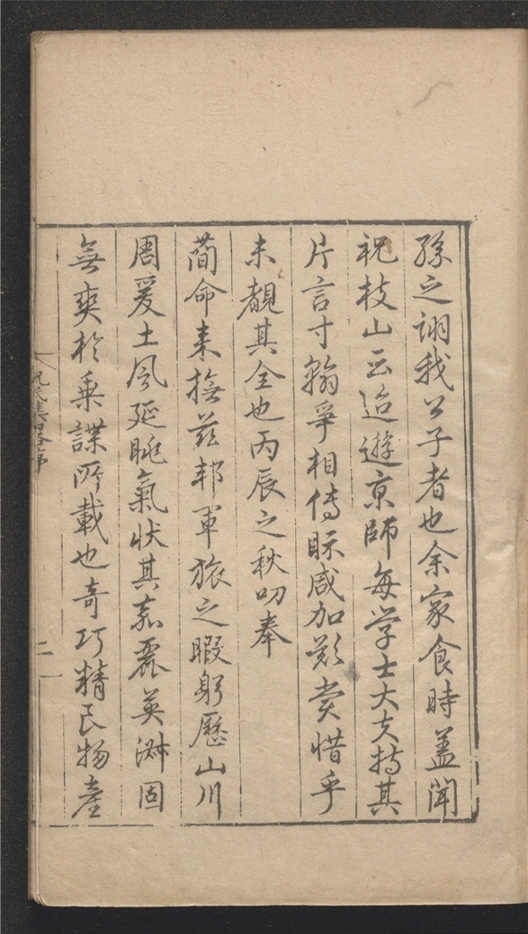 孫之詡我公子者也余家食時蓋聞
祝枝山云迨遊京師每学士大夫持其
片言寸翰爭相傳眎咸加歎賞惜乎
未覩其全也丙辰之秋叨奉
蕳命来撫茲邦軍旅之暇躬歷山川
周爰土風延眺氣状其嘉麗英淑固
無爽於乗諜所載也奇巧精良物產
祝氏集畧序
二